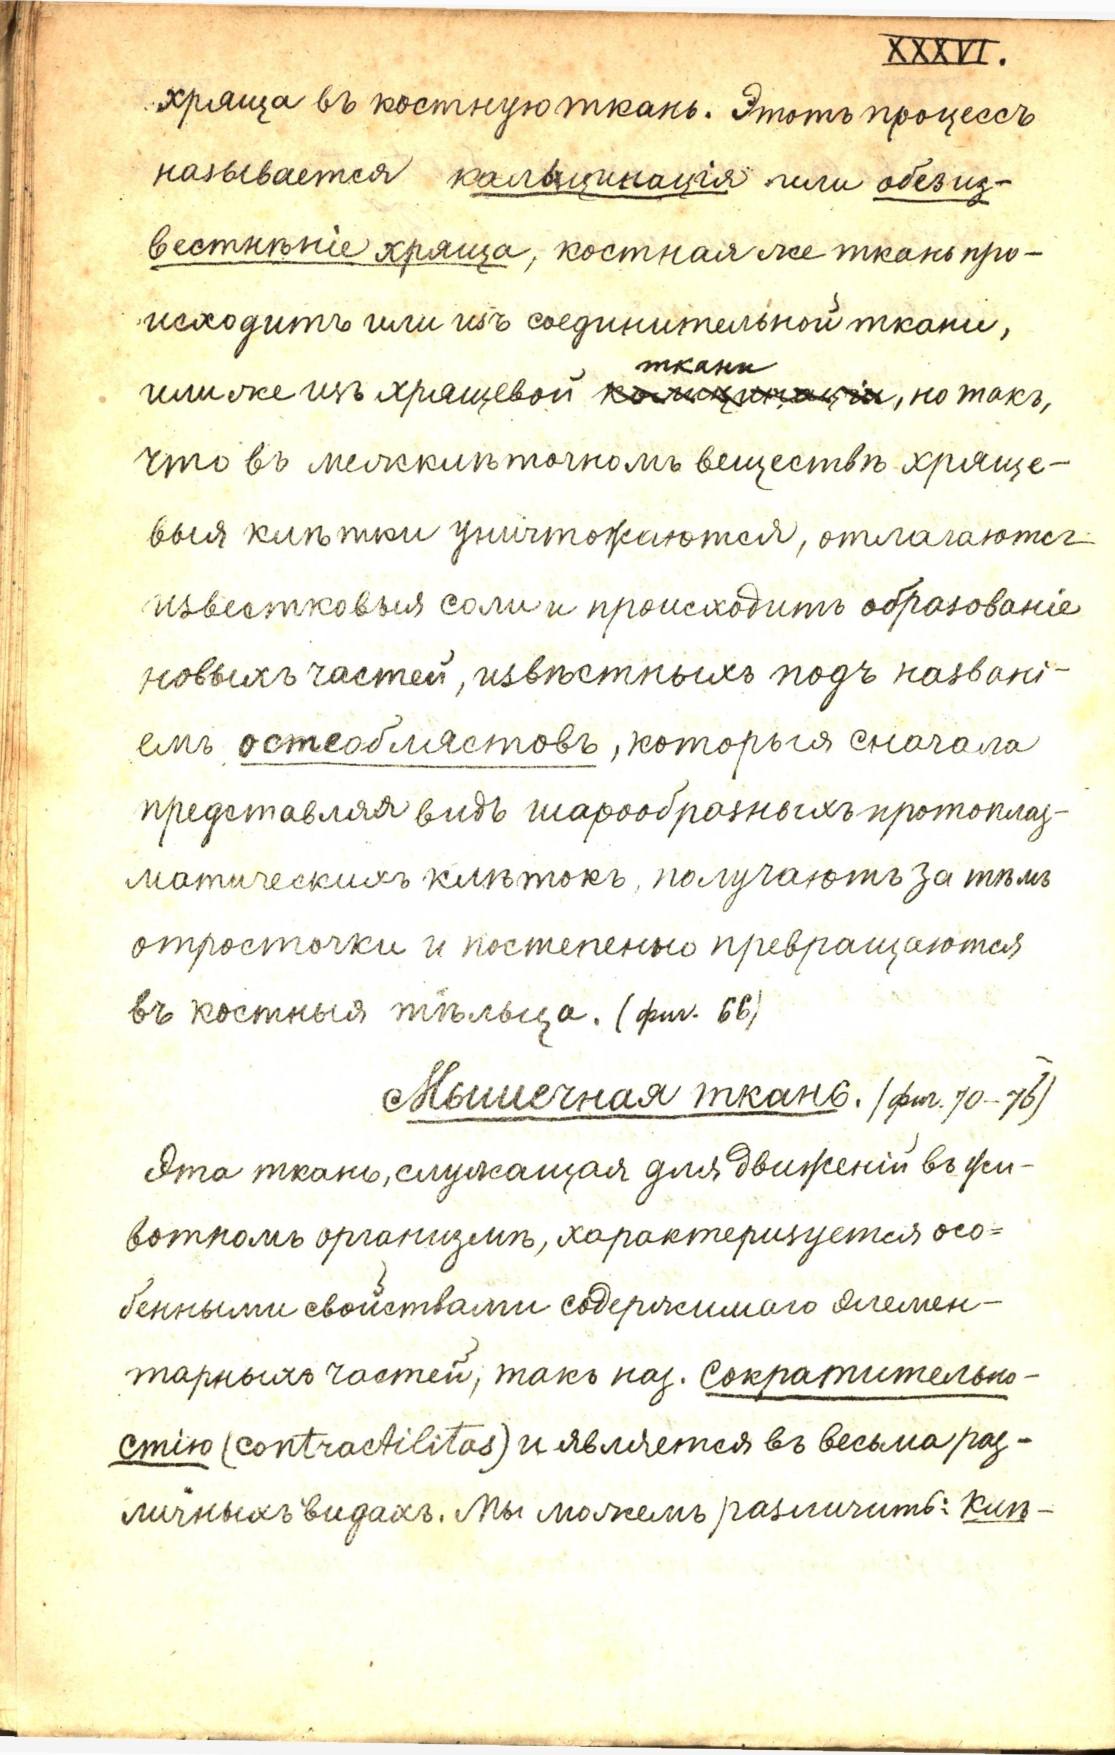 XXXVI.
хряща въ костную ткань. Этотъ процессъ
называется кальцинація или обезиз-
вестнѣніе хряща, костная же ткань про-
исходитъ или изъ соединительной ткани,
ткани
или же изъ хрящевой кальцинаціи, но такъ,
что въ межклѣточномъ веществѣ хряще-
выя клѣтки уничтожаются, отлагаются
известковыя соли и происходитъ образованіе
новыхъ частей, извѣстныхъ подъ названі-
емъ остеобластовъ, которыя сначала
представляя видъ шарообразныхъ протоплаз-
матическихъ клѣтокъ, получаютъ за тѣмъ
отросточки и постепенно превращаются
въ костныя тѣльца. (фиг. 66)
Мышечная ткань. (фиг. 70-76)
Эта ткань, служащая для движеній въ жи-
вотномъ организмѣ, характеризуется осо=
бенными свойствами содержимаго элемен-
тарныхъ частей, такъ наз. сократительно-
стію (contractilitas) и является въ весьма раз-
личныхъ видахъ. Мы можемъ различить: Клѣ-